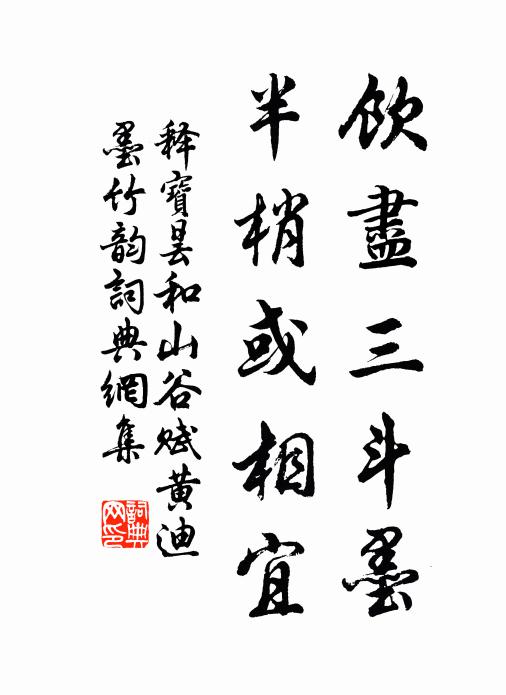 飲盡三斗墨
半梢或相宜
释寶曇和山谷赋黄迪
墨竹韵詞典網集
詞典网印